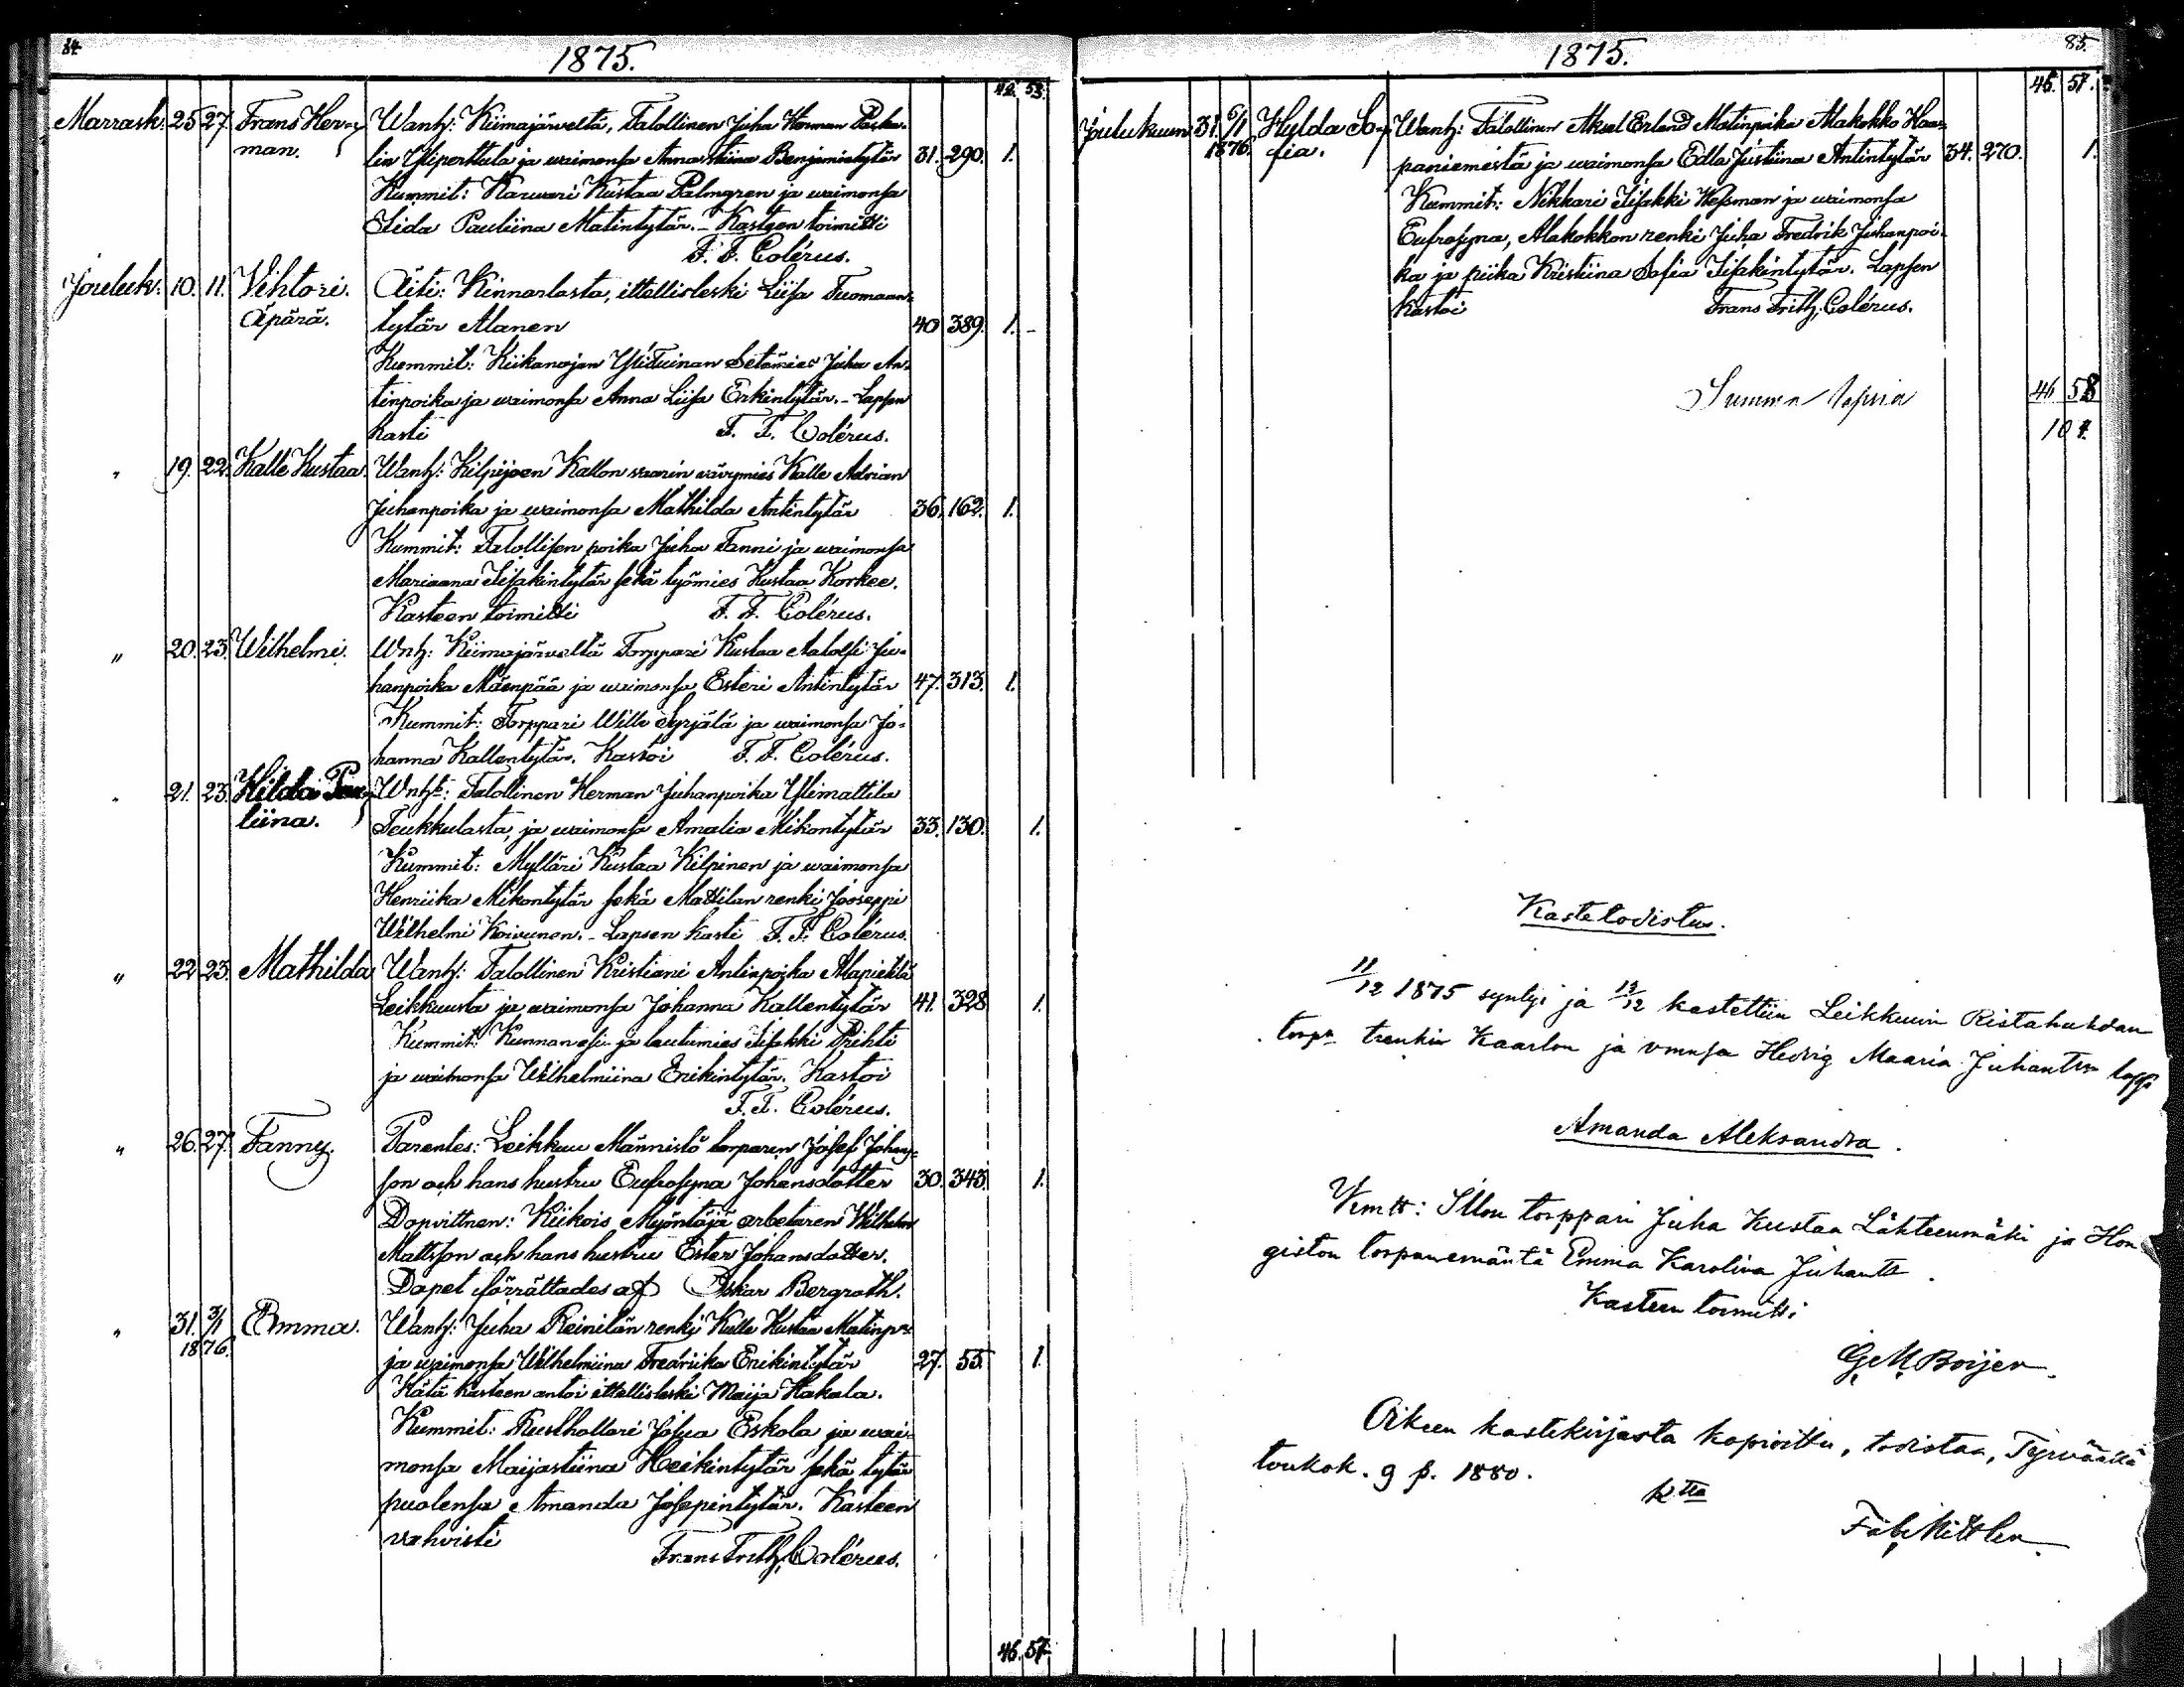 84.
1875.
42. 53.
Marrask. 25. 27. Frans Her- Wanh: Kiimajärveltä, Talollinen Juha Herman Paska-
man. lin Yliperttula ja waimonsa Annastiina Benjamintytär 31. 290. 1.
Kummit: Karwari Kustaa Palmgren ja waimonsa
Eida Pauliina Matintytär. - Kasteen toimitti
F. F. Colérus.
Jouluk. 10. 11. Vihtori. Äiti: Kinnarlasta, ittellisleski Liisa Tuomaan-
Äpärä. tytär Alanen 40 389. 1. -
Kummit: Kiikanojan Ylituinan Setämies Juha An-
tinpoika ja waimonsa Anna Liisa Erkintytär. - Lapsen
kasti F. F. Colérus.
" 19. 22. Kalle Kustaa. Wanh: Kilpijoen Kallon vaarin vävymies Kalle Adrian
Juhanpoika ja waimonsa Mathilda Antintytär 36. 162. 1.
Kummit: Talollisen poika Juha Tanni ja waimonsa
Mariaana Iisakintytär sekä työmies Kustaa Korkee.
Kasteen toimitti F. F. Colérus.
" 20. 23. Wilhelmi. Wnh: Kiimajärveltä Torppari Kustaa Aatolfi Ju-
hanpoika Mäenpää ja waimonsa Esteri Antintytär 47. 313. 1.
Kummit: Torppari Wille Syrjälä ja waimonsa Jo-
hanna Kallentytär. Kastoi F. F. Colérus.
" 21. 23. Hilda Pau- Wnht: Talollinen Herman Juhanpoika Ylimattila
liina. Teukkulasta, ja waimonsa Amalia Mikontytär 33. 130. 1.
Kummit: Mylläri Kustaa Kilpinen ja waimonsa
Henriika Mikontytär sekä Mattilan renki Jooseppi
Wilhelmi Koivunen. - Lapsen kasti F. F. Colérus.
" 22. 23. Mathilda Wanh: Talollinen Kristiani Antinpoika Alapietilä
Leikkuusta ja waimonsa Johanna Kallentytär 41. 328 1.
Kummit: Kunnanesi- ja lautamies Iisakki Prihti
ja waimonsa Wilhelmiina Erikintytär. Kastoi
F. F. Colérus.
" 26. 27. Fanny. Parentes: Leikkuu Männistö torparen Josef Johans-
son och hans hustru Eufrosyna Johansdotter 30. 343. 1.
Dopvittnen: Kiikois Myöntäjä arbetaren Wilhelm
Mattsson och hans hustru Ester Johansdotter.
Dopet förrättades af Oskar Bergroth.
" 31. 3/1 Emma. Wanh: Juha Reinilän renki Kalle Kustaa Matinp.
1876. ja waimonsa Wilhelmiina Fredriika Erikintytär 27. 55 1.
Hätä kasteen antoi ittellisleski Maija Hakala.
Kummit: Rusthollari Josua Eskola ja wai-
monsa Maijastiina Heikintytär sekä tytär
puolensa Amanda Josepintytär. Kasteen
vahvisti Frans Frith. Colérus.
46. 57.
85.
1875.
46. 57.
Joulukuun 31. 6/1 Hylda So- Wanh: Talollinen Aksel Erland Matinpoika Alakokko Haa-
1876. fia. paniemestä ja waimonsa Edla Justiina Antintytär 34. 270. 1.
Kummit: Nikkari Iisakki Hessman ja waimonsa
Eufrosyna, Alakokkon renki Juha Fredrik Juhanpoi-
ka ja piika Kristiina Sofia Iisakintytär. Lapsen
kastoi Frans Frith. Colérus.
Summa lapsia 46 58
104.
Kastetodistus.
11/12 1875 syntyi ja 13/12 kastettiin Leikkuun Ristahuhdan
torp. trenkin Kaarlon ja vmnsa Hedvig Maaria Juhantr. lapsi
Amanda Aleksandra.
Kmtt: Illon torppari Juha Kustaa Lähteenmäki ja Hon-
giston torpanemäntä Emma Karolina Juhantr.
Kasteen toimitti
G. M. Boijer.
Oikeen kastekirjasta kopioittu, todistaa, Tyrväässä
toukok. 9 p. 1880.